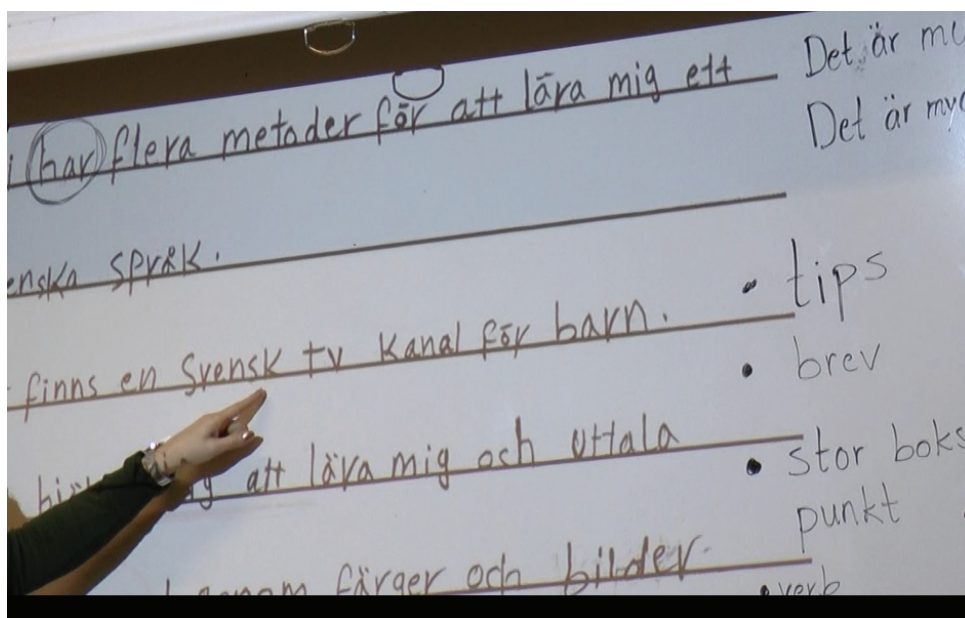 har flera metoder för att lära mig ett
språk.
finns en Svensk tv Kanal för barn.
att lära mig och uttala
färger och bilder.
Det är
Det är
• tips
• brev
• stor
punkt
• verb